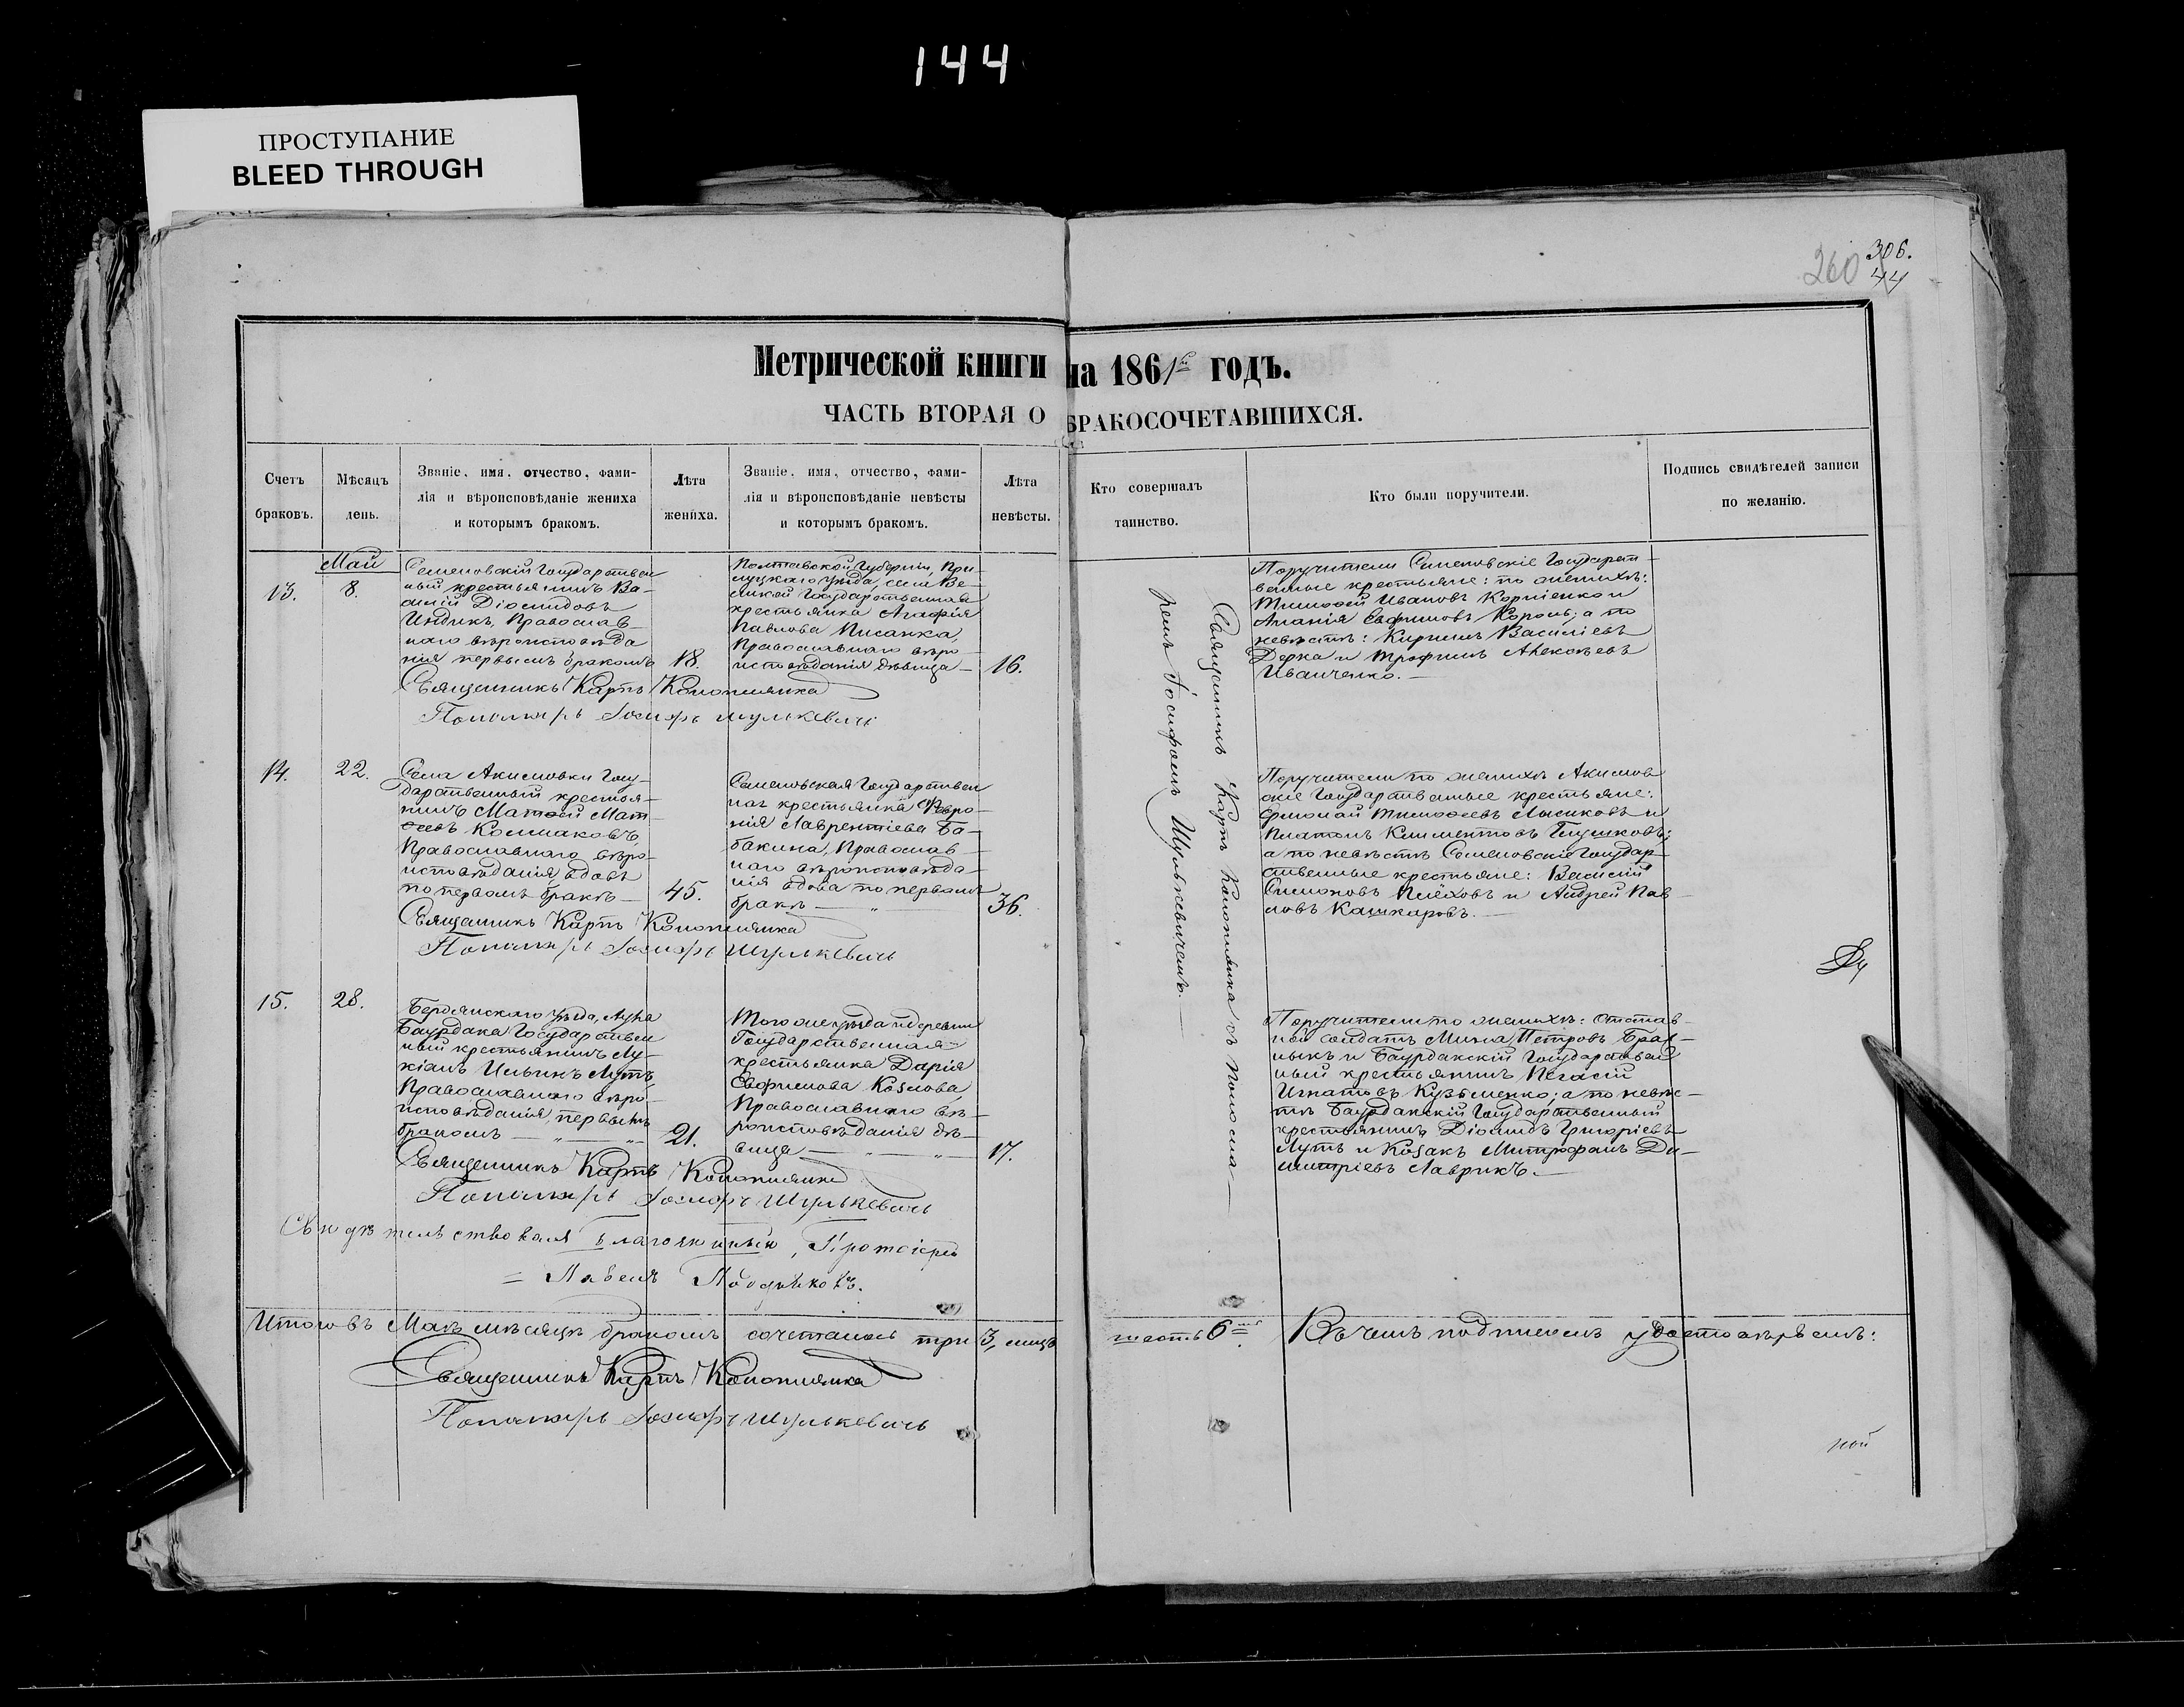 144
ПРОСТУПАНИЕ
BLEED THROUGH
306.
260 44
Метрической книги на 1861го годъ.
ЧАСТЬ ВТОРАЯ О БРАКОСОЧЕТАВШИХСЯ.
Счетъ
браковъ.
Мѣсяцъ
день.
Званіе, имя, отчество, фами-
лія и вѣроисповѣданіе жениха
и которымъ бракомъ.
Лѣта
жениха.
Званіе, имя, отчество, фами-
лія и вѣроисповѣданіе невѣсты
и которымъ бракомъ.
Лѣта
невѣсты.
Кто совершалъ
таинство.
Кто были поручители.
Подпись свидѣтелей записи
по желанію.
Май
13.
8.
Семеновскій Государствен
ный крестьянинъ Ва-
силій Діомидовъ
Индикъ, Православ-
наго вѣроисповѣда
нія первымъ бракомъ
18.
Полтавской Губерніи, При-
луцкаго уѣзда, села Ве-
ликой Государственная
крестьянка Агафія
Павлова Писанка,
Православнаго вѣро-
исповѣданія дѣвица —
16.
Священникъ Карпъ Коноплянка
Пономарь Іосифъ Шулькевичъ
Священникъ Карпъ Коноплянка съ понома-
ремъ Іосифомъ Шулькевичемъ. —
Поручители Семеновскіе Государст-
венные крестьяне: по женихѣ:
Тимофей Ивановъ Корніенко и
Ананія Евфимовъ Король; а по
невѣстѣ: Кирилъ Василіевъ
Дерка и Трофимъ Алексѣевъ
Иванченко. —
14.
22.
Села Акимовки Госу-
дарственный крестья-
нинъ Матѳей Мат-
ѳеевъ Колмаковъ,
Православнаго вѣро-
исповѣданія, вдовъ
по первомъ бракѣ —
45.
Семеновская Государствен
ная крестьянка Февро-
нія Лаврентіева Ба-
бакина, Православ-
наго вѣроисповѣда-
нія вдова по первомъ
бракѣ — " —
36.
Священникъ Карпъ Коноплянка
Пономарь Іосифъ Шулькевичъ
Поручители по женихѣ Акимов
скіе Государственные крестьяне:
Ермолай Тимофеевъ Лысиковъ и
Платонъ Климентовъ Глушковъ;
а по невѣстѣ Семеновскіе Государ-
ственные крестьяне: Василій
Симоновъ Плёховъ и Андрей Пав-
ловъ Кашкаровъ. —
15.
28.
Бердянскаго уѣзда, Луга
Баурдака Государствен
ный крестьянинъ Лу-
кіанъ Ильинъ Лутъ,
Православнаго вѣро-
исповѣданія, первымъ
бракомъ — " — " —
21.
Того же уѣзда и деревни
Государственная
крестьянка Дарія
Евфимова Козлова,
Православнаго вѣ-
роисповѣданія дѣ-
вица — " — " —
17.
Священникъ Карпъ Коноплянка
Пономарь Іосифъ Шулькевичъ
Поручители по женихѣ: Отстав-
ной солдатъ Мина Петровъ
и Баурдакскій Государствен
ный крестьянинъ
Игнатовъ Кузьменко; а по невѣс-
тѣ Баурдакскій Государственный
крестьянинъ Діомидъ Григоріевъ
Лутъ и Козакъ Митрофанъ Ди-
митріевъ Лаврикъ. —
Свидѣтельствовалъ Благочинный, Протоіерей
= Павелъ
Итого въ Маѣ мѣсяцѣ бракомъ сочеталось три 3, лицъ шесть 6ть. Въ чемъ подписемъ удостовѣряемъ:
Священникъ Карпъ Коноплянка
Пономарь Іосифъ Шулькевичъ
ной